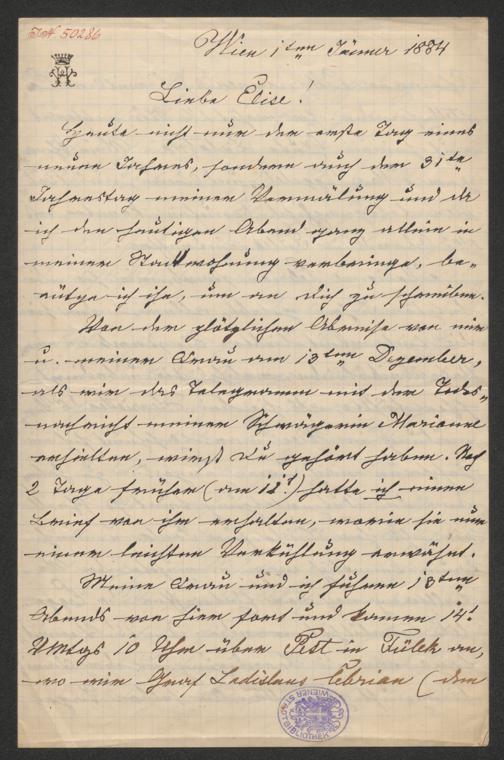 JoN 50286
Wien 1ten Jänner 1884
Liebe Elise!
Heute nicht nur der erste Tag eines
neuen Jahres, sondern auch der 31te
Jahrestag meiner Vermälung und da
ich den heutigen Abend ganz allein in
meiner Stadtwohnung verbringe, be-
nütze ich ihn, um an Dich zu schreiben.
Von der plötzlichen Abreise von mir
u. meiner Frau am 13ten Dezember,
als wir das Telegramm mit der Todes-
nachricht meiner Schwägerin Marianne
erhielten, wirst Du gehört haben. Noch
2 Tage früher (am 11t.) hatte ich einen
Brief von ihr erhalten, worin sie nur
einer leichten Verkühlung erwähnt.
Meine Frau und ich fuhren 13ten
Abends von hier fort und kamen 14t.
Vmtgs 10 Uhr über Pest in Fülek an,
wo wir Graf Ladislaus Cebrian (den
WIENER STADTBIBLIOTHEK